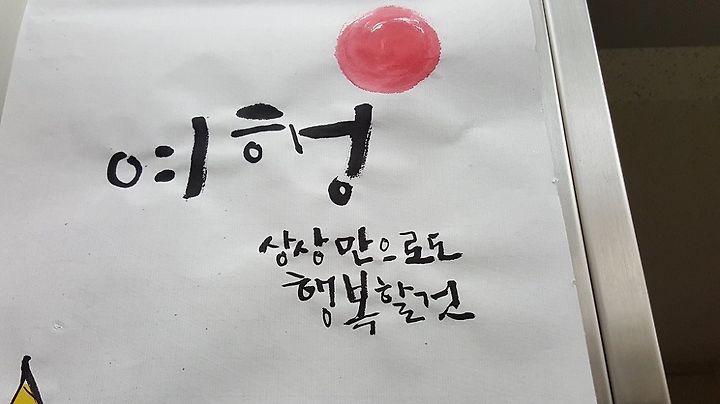 여행
상상만으로도
행복할것